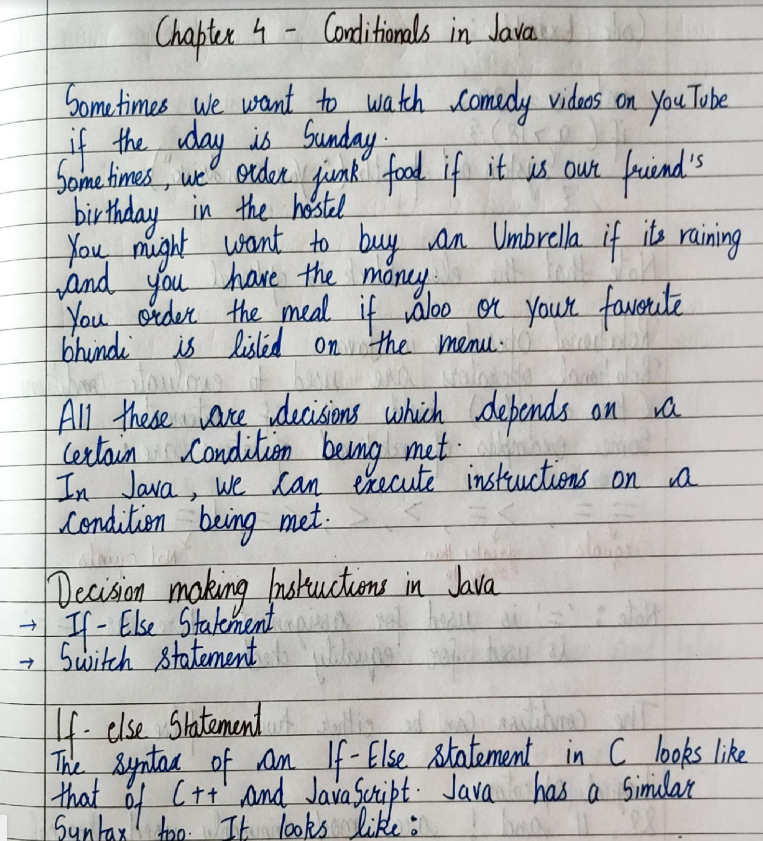 Chapter 4 - Conditionals in Java
Sometimes we want to watch comedy videos on YouTube
if the day is Sunday.
Sometimes, we order junk food if it is our friend's
birthday in the hostel
You might want to buy an Umbrella if its raining
and you have the money.
You order the meal if aloo or your favorite
bhindi is listed on the menu.
All these are decisions which depends on a
certain condition being met.
In Java, we can execute instructions on a
condition being met.
Decision making Instructions in Java
→ If - Else Statement
→ Switch statement
If - else Statement
The syntax of an If-Else statement in C looks like
that of C++ and JavaScript. Java has a similar
Syntax too. It looks like :